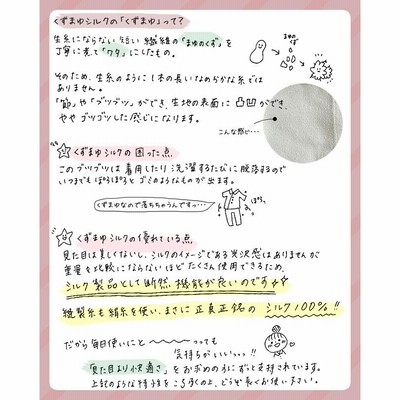 くずまゆシルクの「くずまゆ」って？
生糸にならない短い繊維の「まゆのくず」を
丁寧に煮て「ワタ」にしたもの。
まゆのくず
そのため、生糸のように1本の長いなめらかな糸では
ありません。
「節」や「ブツブツ」ができ、生地の表面に凸凹ができ、
ややゴツゴツした感じになります。
こんな感じ…
くずまゆシルクの困った点
このブツブツは着用したり洗濯するたびに脱落するので
いつまでもぽろぽろとゴミのようなものが出ます。
くずまゆなので落ちちゃうんですっ…
ぽろっ
くずまゆシルクの優れている点
見た目は美しくないし、シルクのイメージである光沢感はありませんが
重量を比較にならないほどたくさん使用できるため、
シルク製品として断然機能が良いのです
縫製糸も絹糸を使い、まさに正真正銘のシルク100%!!
だから毎日使いにと〜っっても
気持ちがいいっっ!!
「見た目より快適さ」をお求めの方にずっと支持されています。
上記のような特徴をご了承の上、どうぞ長くお使い下さい。